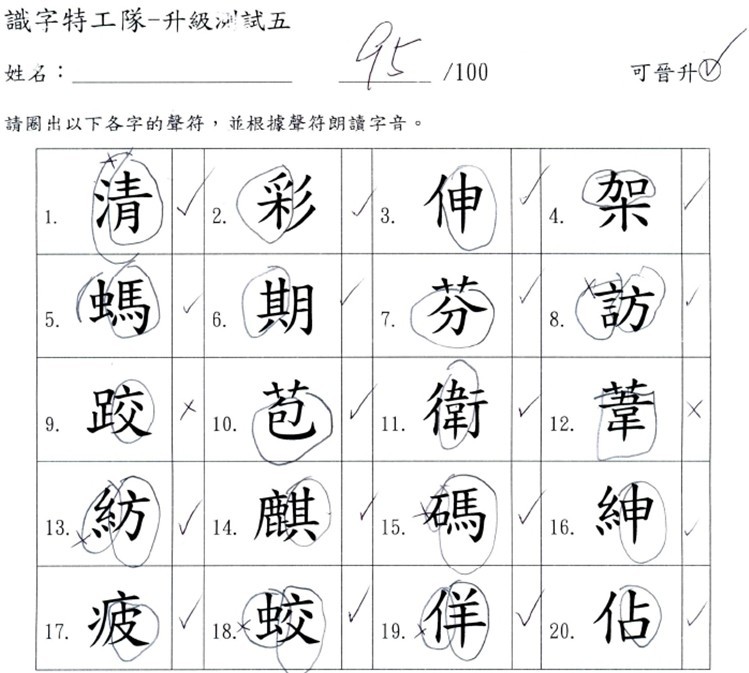 識字特工隊-升級測試五
姓名：____________ 95 /100 可晉升✓
請圈出以下各字的聲符，並根據聲符朗讀字音。
1. 清 ✓ 2. 彩 ✓ 3. 伸 ✓ 4. 架 ✓
5. 螞 ✓ 6. 期 ✓ 7. 芬 ✓ 8. 訪 ✓
9. 跤 × 10. 苞 ✓ 11. 衛 ✓ 12. 葦 ×
13. 紡 ✓ 14. 麒 ✓ 15. 碼 ✓ 16. 紳 ✓
17. 疲 ✓ 18. 蛟 ✓ 19. 佯 ✓ 20. 佔 ✓